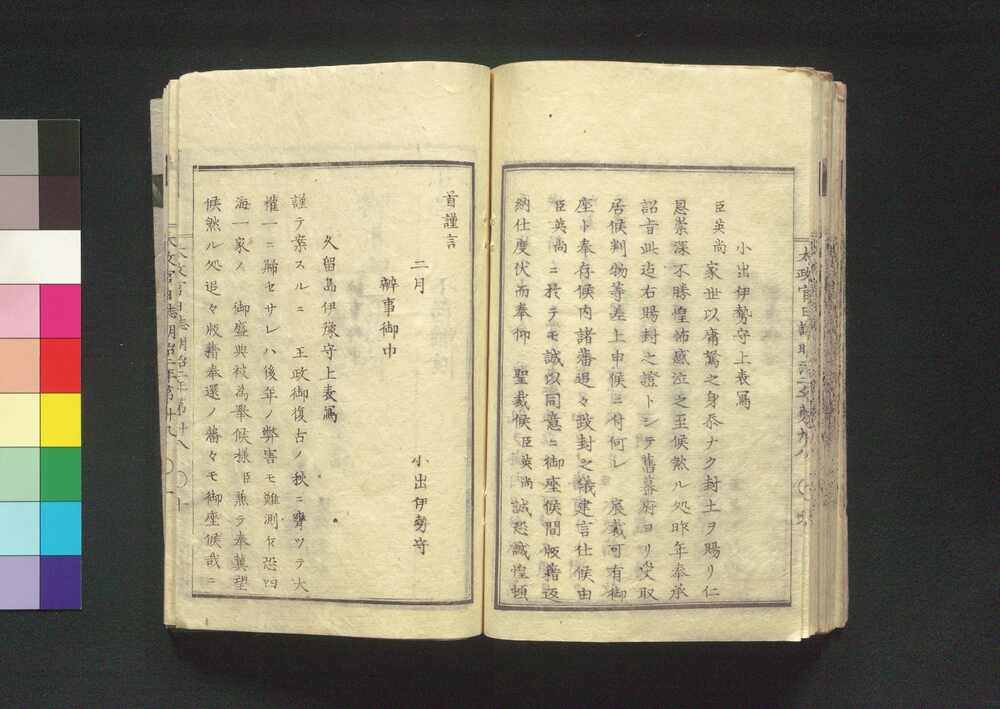 小出伊勢守上表寫
臣英尚家世以庸駑之身忝ナク封土ヲ賜リ仁
恩崇深不勝惶怖感泣之至候然ル処昨年奉承
詔旨此迄右賜封之證トシテ舊幕府ヨリ受取
居候判物等差上申候ニ付何レ 宸裁可有御
座ト奉存候内諸藩追々致封之儀建言仕候由
臣英尚ニ於テモ誠以同意ニ御座候間版籍返
納仕度伏而奉仰 聖裁候臣英尚誠恐誠惶頓
首謹言
二月 小出伊勢守
辨事御中
久留島伊豫守上表寫
謹テ案スルニ 王政御復古ノ秋ニ膺ツテ大
權一ニ歸セサレハ後年ノ弊害モ難測ク恐四
海一家ノ 御盛典被為擧候様臣兼テ奉冀望
候然ル処追々版籍奉還ノ藩々モ御座候哉ニ
太政官日誌明治二年第十八